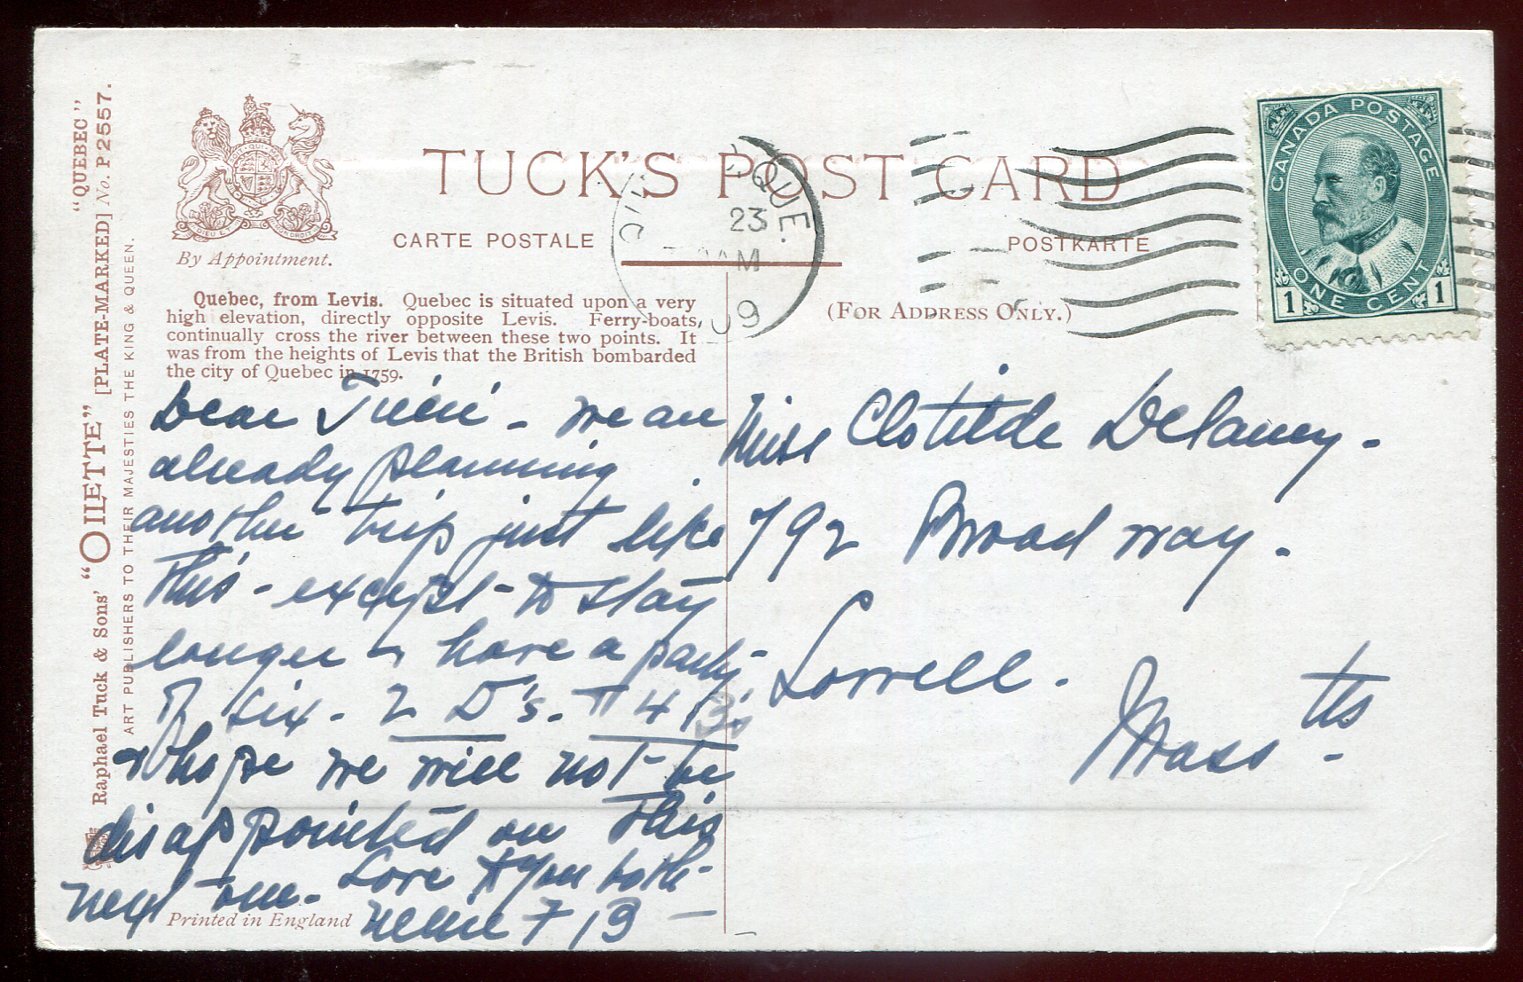 "QUEBEC"
Raphael Tuck & Sons' "OILETTE" [PLATE-MARKED] No. P 2557.
ART PUBLISHERS TO THEIR MAJESTIES THE KING & QUEEN.
By Appointment.
TUCK'S POST CARD
CARTE POSTALE
POSTKARTE
(FOR ADDRESS ONLY.)
QUE.
23
AM
09
CANADA POSTAGE
1 ONE CENT 1
Quebec, from Levis. Quebec is situated upon a very
high elevation, directly opposite Levis. Ferry-boats,
continually cross the river between these two points. It
was from the heights of Levis that the British bombarded
the city of Quebec in 1759.
Dear - we are
already planning
another trip just like
this - except - to stay
longer & have a party
of six. 2 D's. & 4 B's
& hope we will not be
disappointed on this
next one. Love to you both -
Nellie + B -
Miss Clotilde Delaney -
792 Broadway.
Lowell.
Mass tts
Printed in England